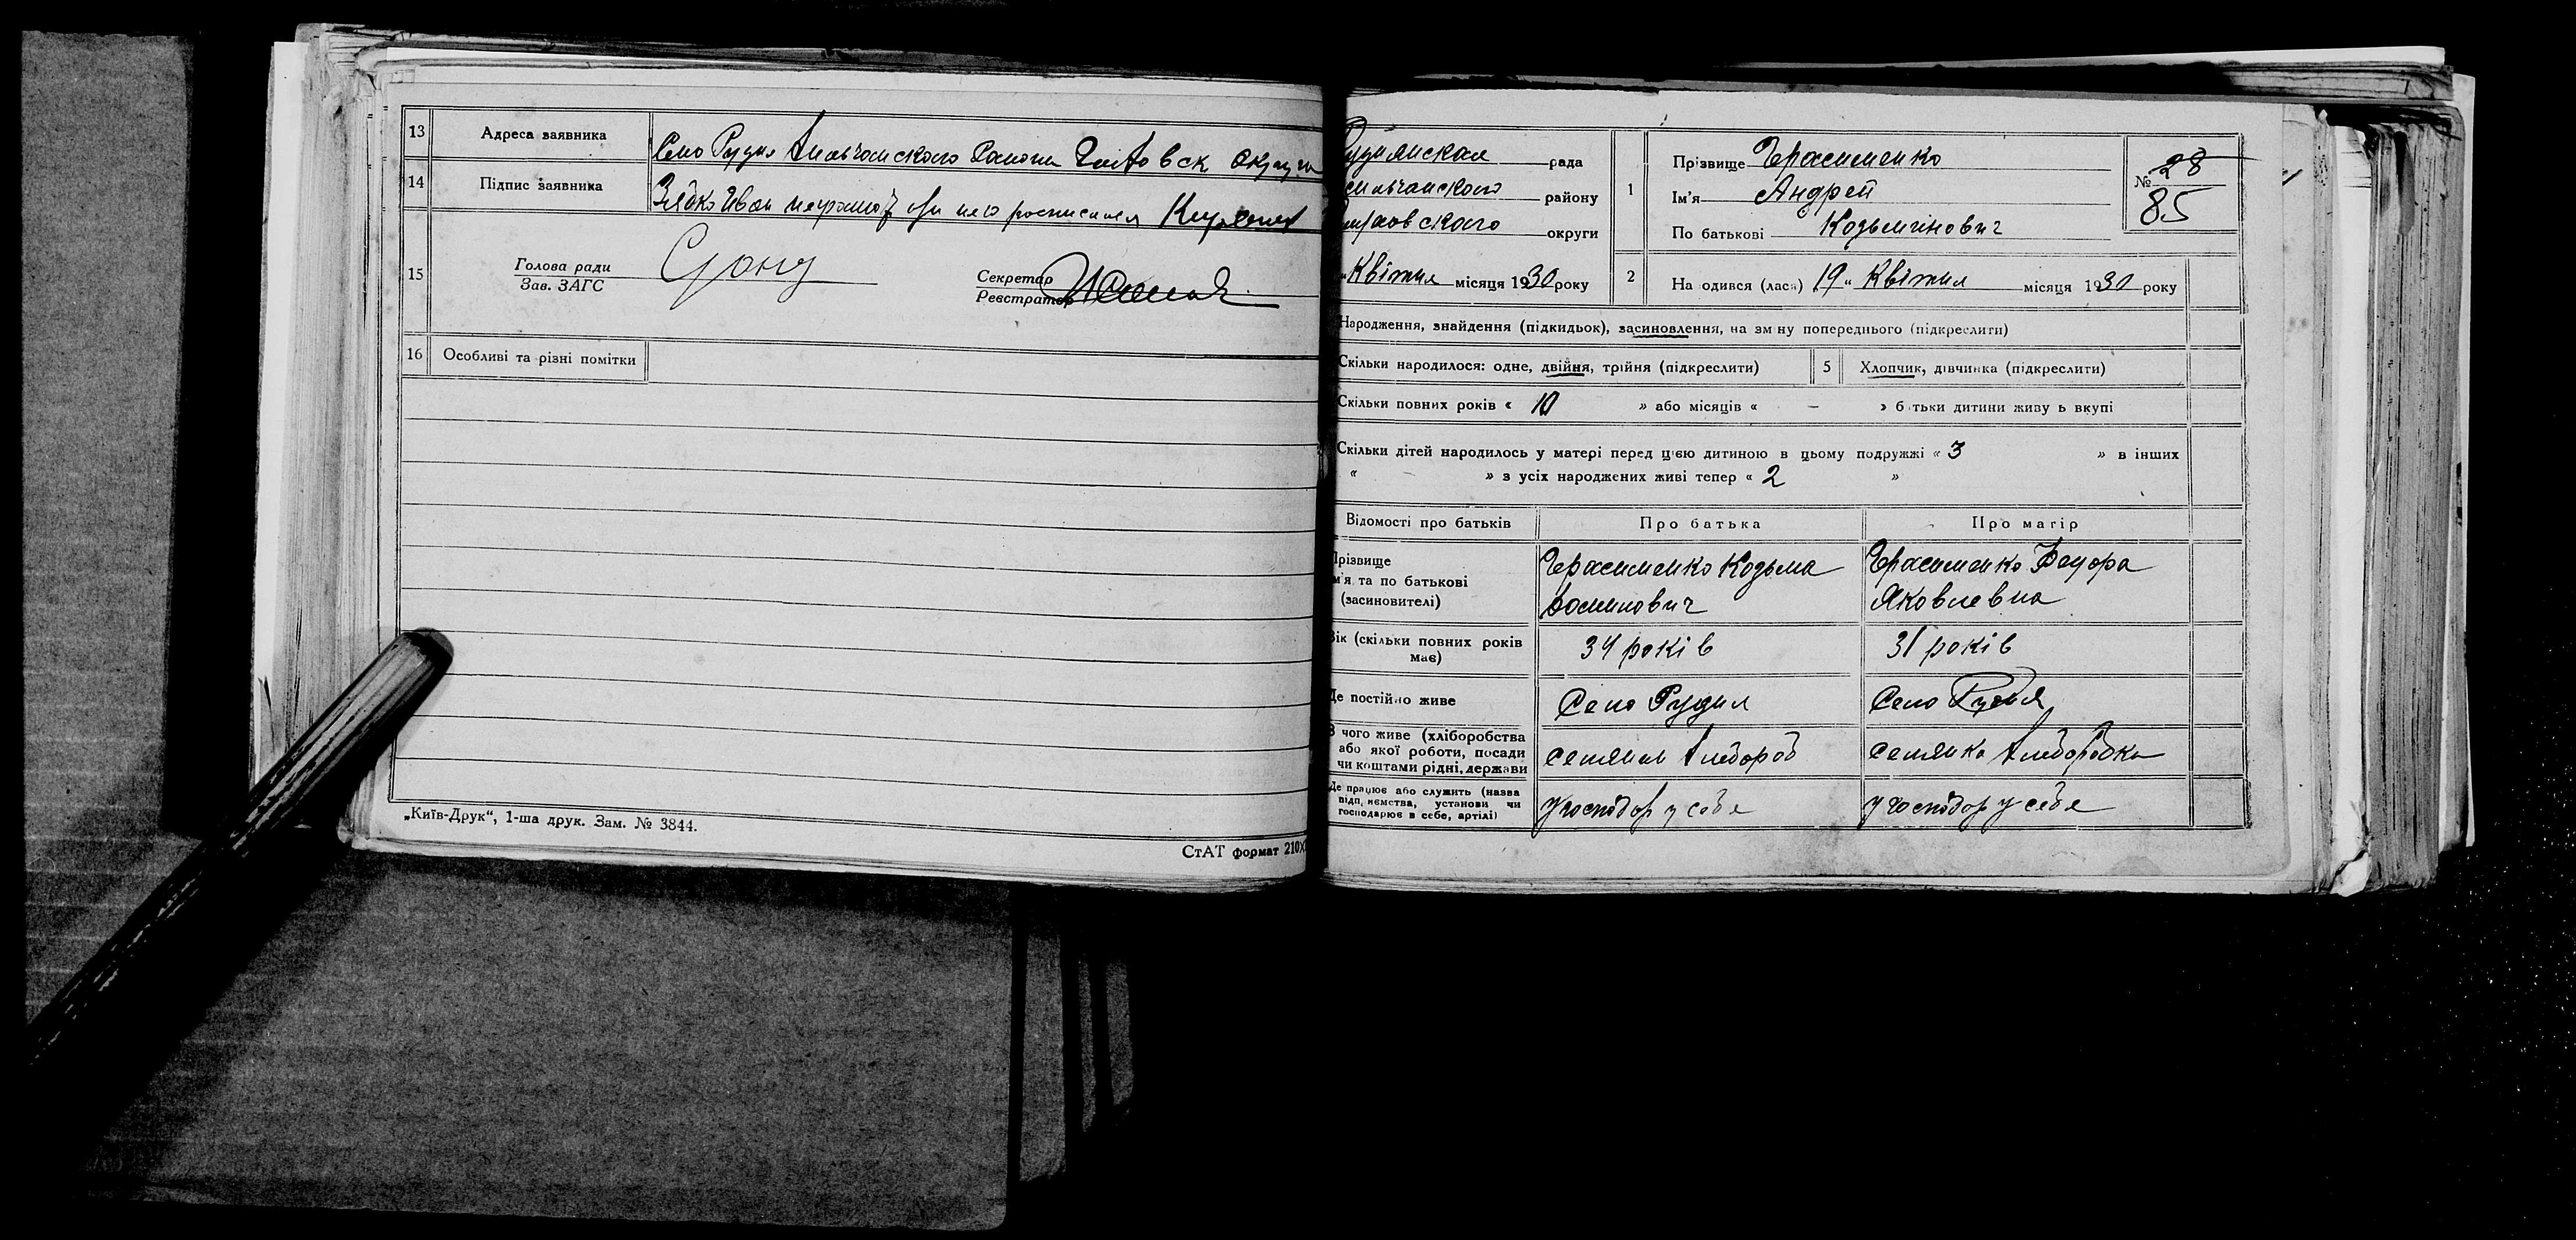 13 Адреса заявника Село Рудня
14 Підпис заявника Зядко Иван
15 Голова ради
Зав. ЗАГС
Секретар
Реєстратор
16 Особливі та різні помітки
„Київ-Друк“, 1-ша друк. Зам. № 3844.
СтАТ формат 210Х
рада
району
округи
Квітня місяця 1930 року
1 Прізвище Герасименко
Ім'я Андрей
По батькові Козьминович
№ 28
85
2 На одився (лася) 19 „ Квітня місяця 1930 року
Народження, знайдення (підкидьок), засиновлення, на зміну попереднього (підкреслити)
Скільки народилося: одне, двійня, трійня (підкреслити) 5 Хлопчик, дівчинка (підкреслити)
Скільки повних років « 10 » або місяців « — » батьки дитини живу ь вкупі
Скільки дітей народилось у матері перед цією дитиною в цьому подружжі « 3 » в інших
« » з усіх народжених живі тепер « 2 »
Відомості про батьків Про батька Про матір
Прізвище
м'я та по батькові
(засиновителі)
Герасименко Козьма
Герасименко Федора
Яковлевна
Вік (скільки повних років
має)
34 років
31 років
Де постійно живе
Село Рудня
Село Рудня
З чого живе (хліборобства
або якої роботи, посади
чи коштами рідні, держави
селянин хлібороб
селянка хліборобка
Де працює або служить (назва
підприємства, установи чи
господарює в себе, артілі)
у господор у себе
у господор у себе